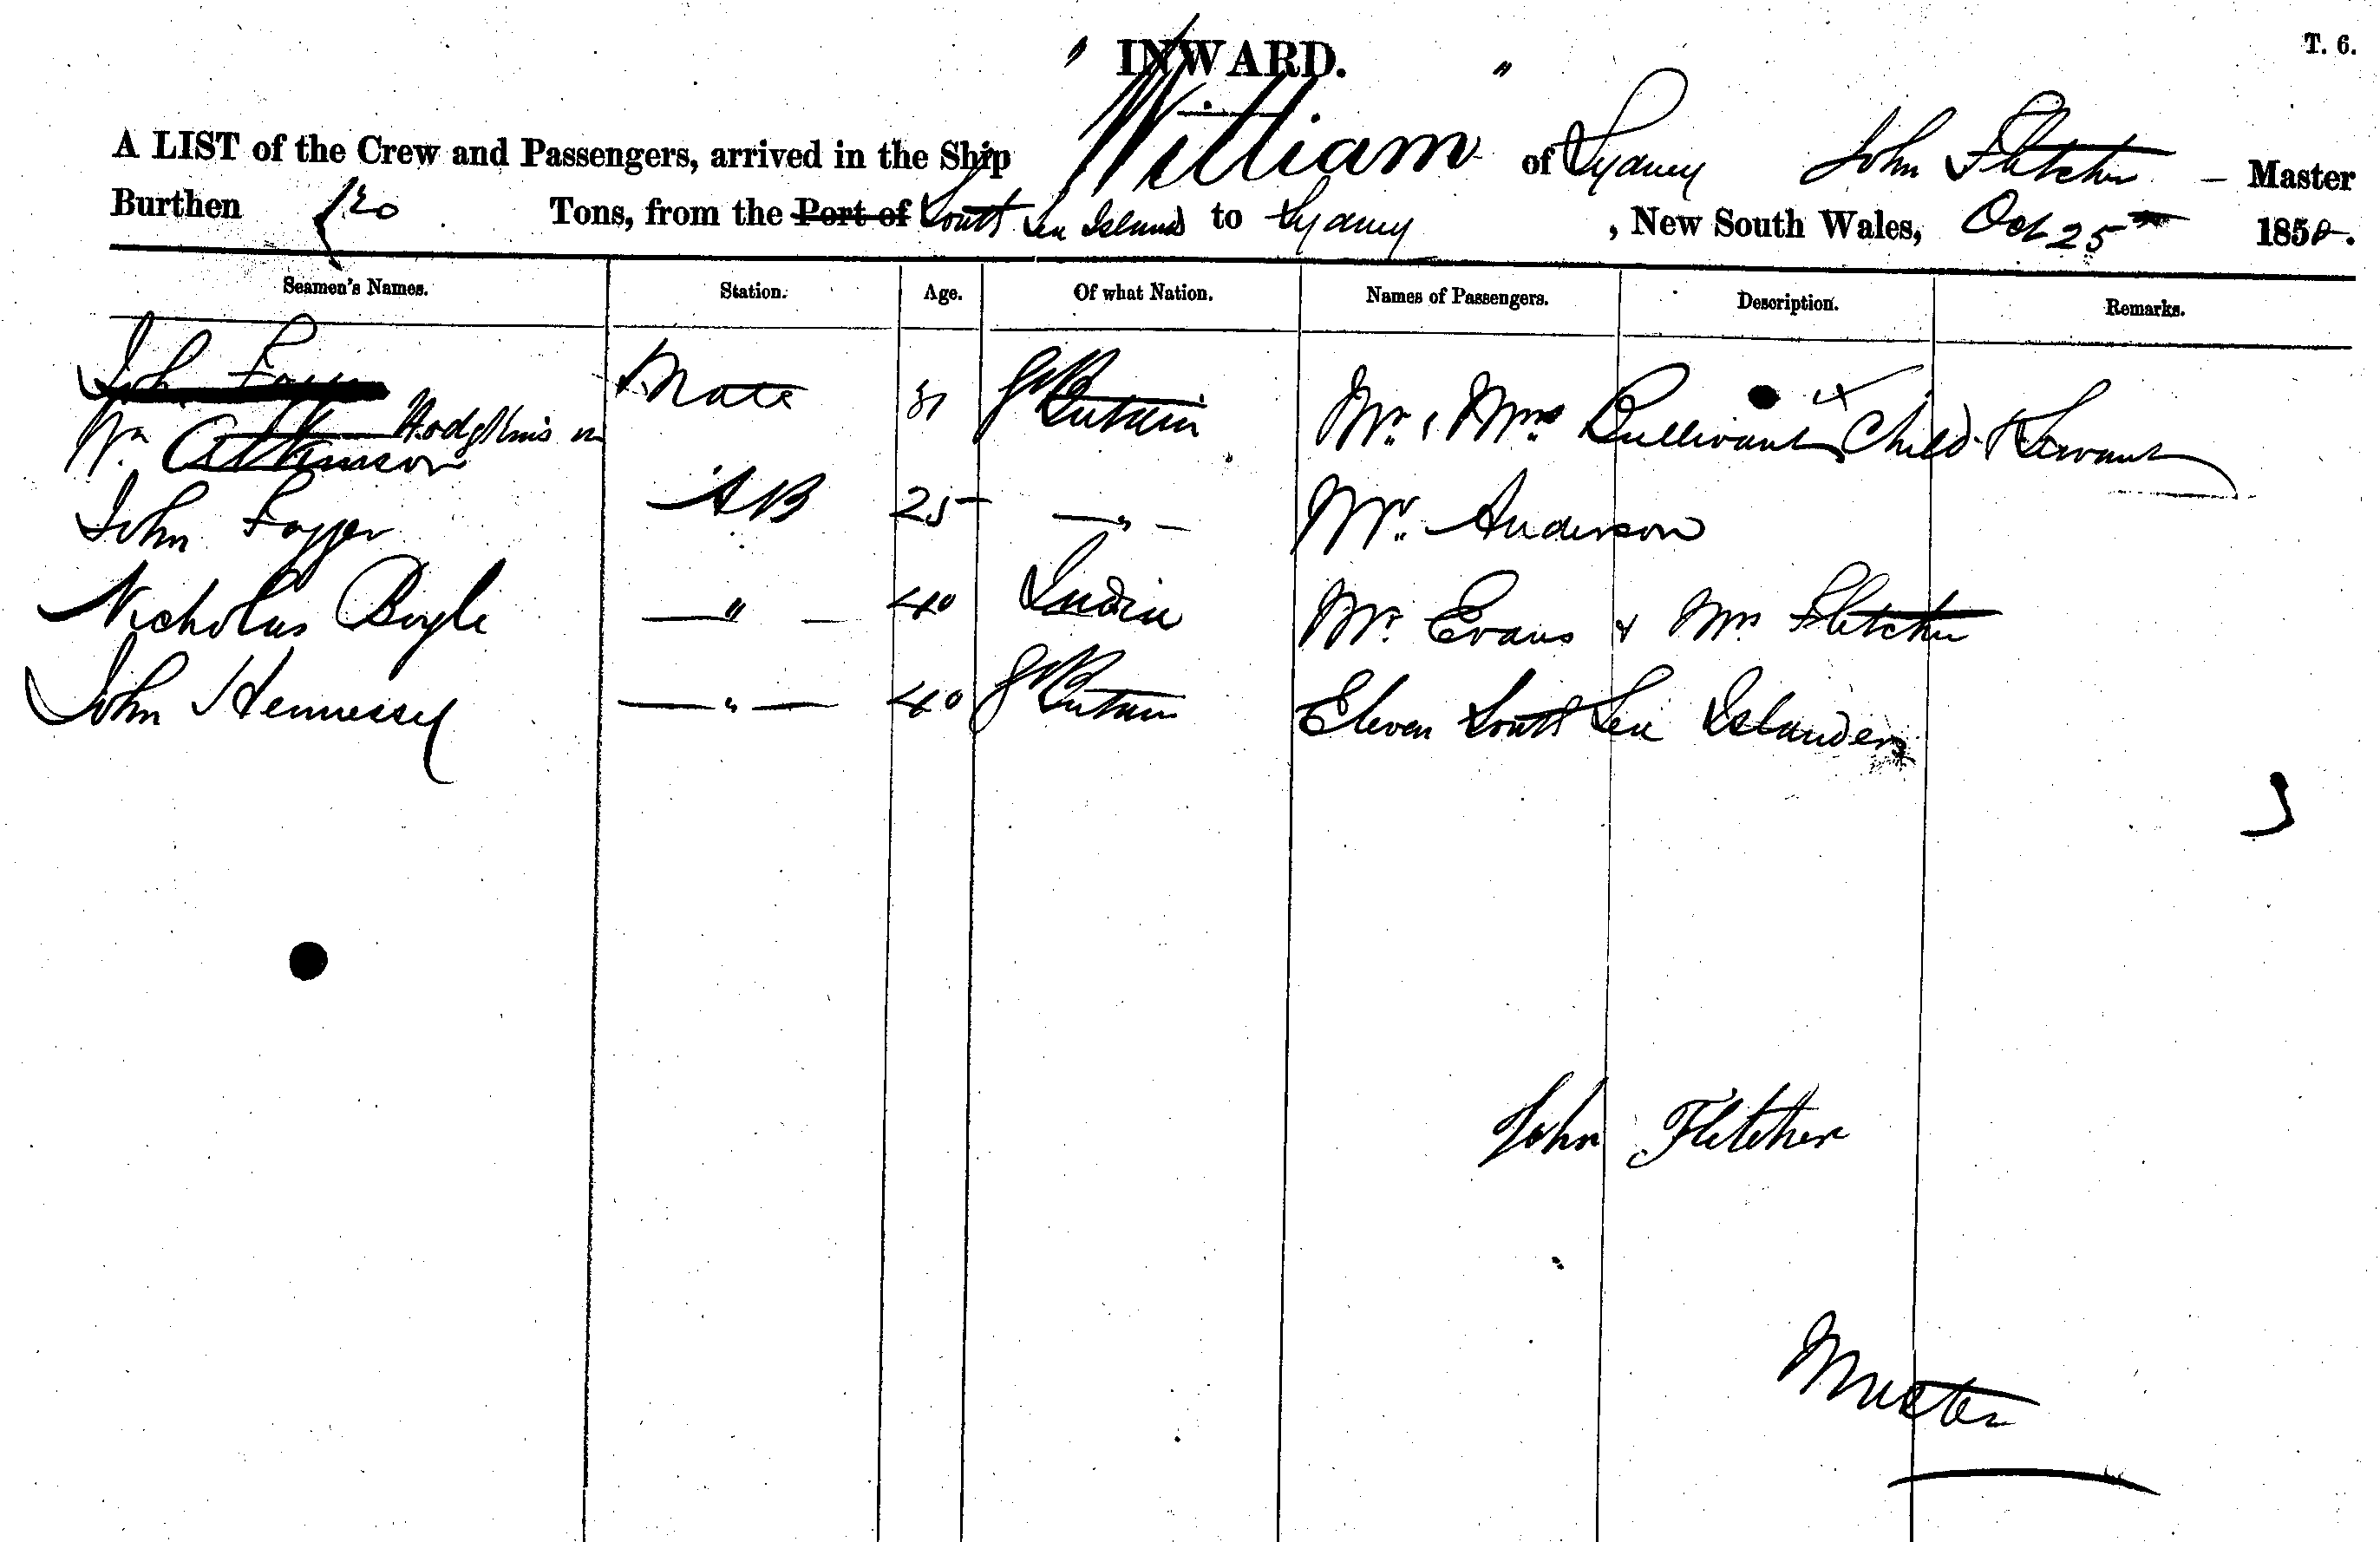 INWARD.
T. 6.
A LIST of the Crew and Passengers, arrived in the Ship "William" of Sydney John Fletcher - Master
Burthen 120 Tons, from the Port of South Sea Islands to Sydney, New South Wales, Oct 25th 1858.
Seamen's Names. Station. Age. Of what Nation. Names of Passengers. Description. Remarks.
John
Wm Atkinson Hodgkins Mate 31 Gt Britain Mr & Mrs Bullivant, Child & Servant
John AB 25 — " — Mr. Anderson
Nicholas Boyle — " — 40 India Mr. Evans & Mrs Fletcher
John Hennessy — " — 40 Gt Britain Eleven South Sea Islanders
John Fletcher
Master